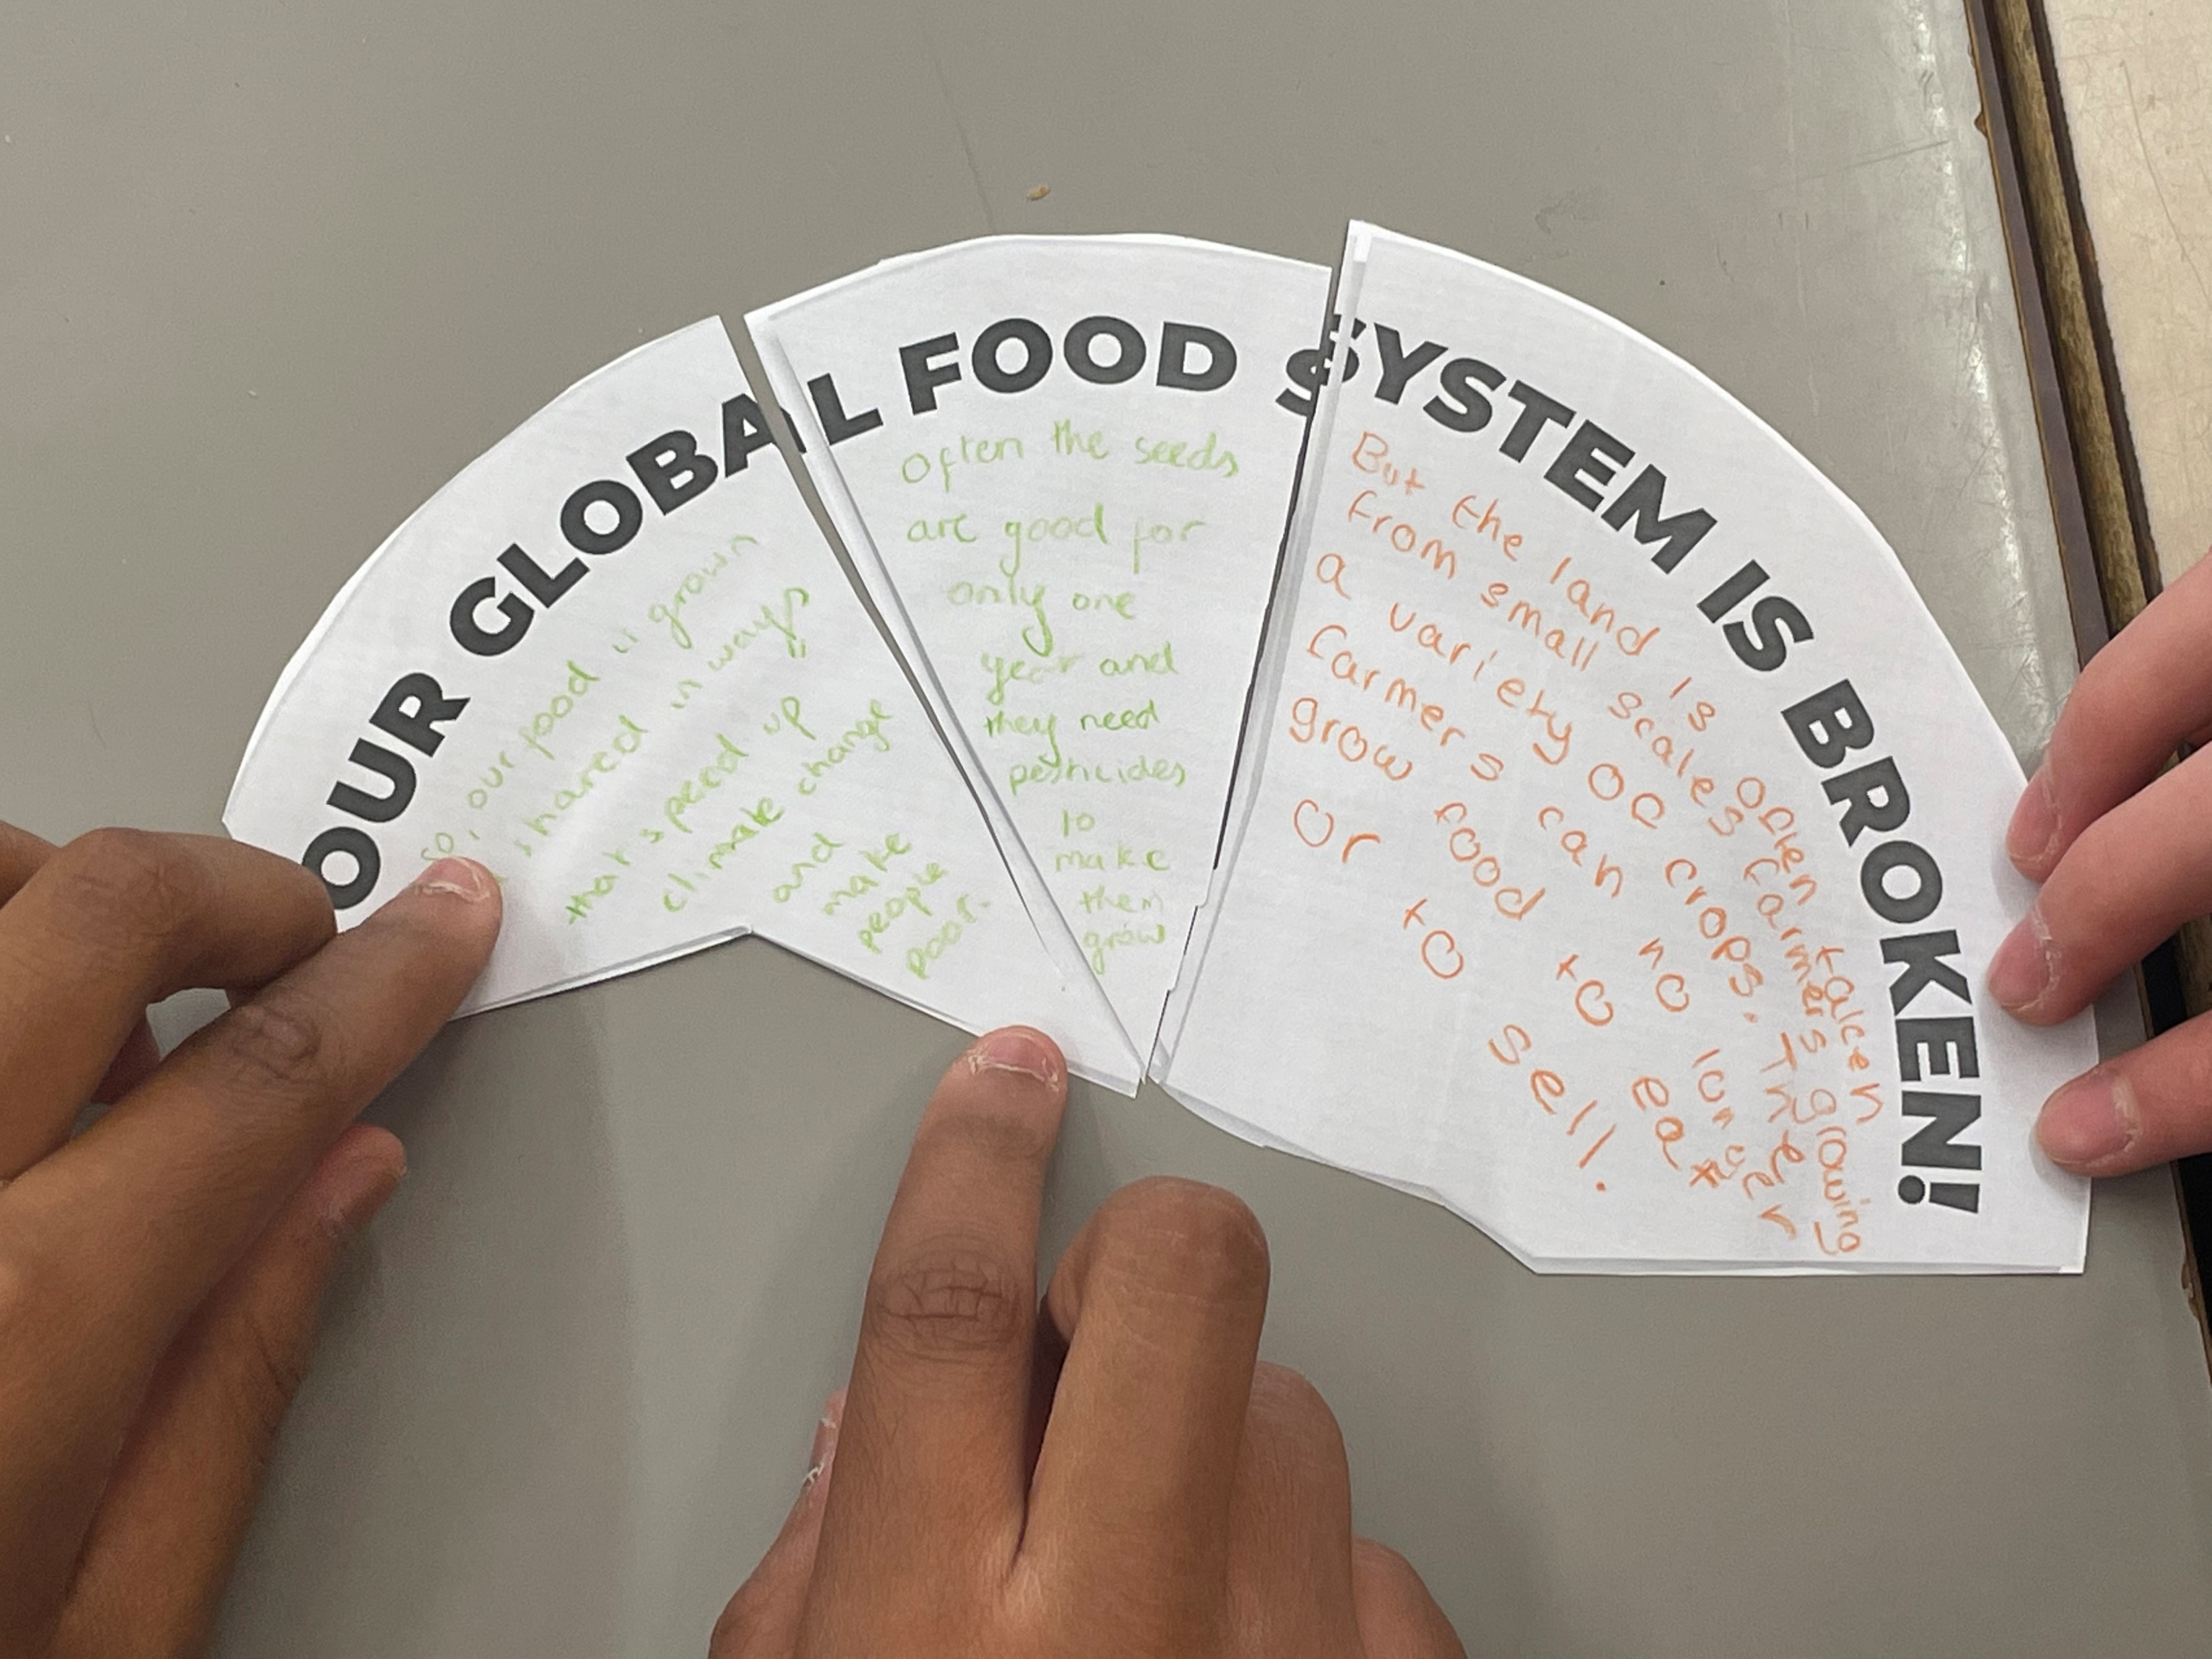 OUR GLOBAL FOOD SYSTEM IS BROKEN!
so, our food is grown
shared in ways
that speed up
climate change
and
make
people
poor.
Often the seeds
are good for
only one
year and
they need
pesticides
to
make
them
grow
But the land is often taken
from small scales farmers growing
a variety of crops. The
farmers can no longer
grow food to eat
or to sell.